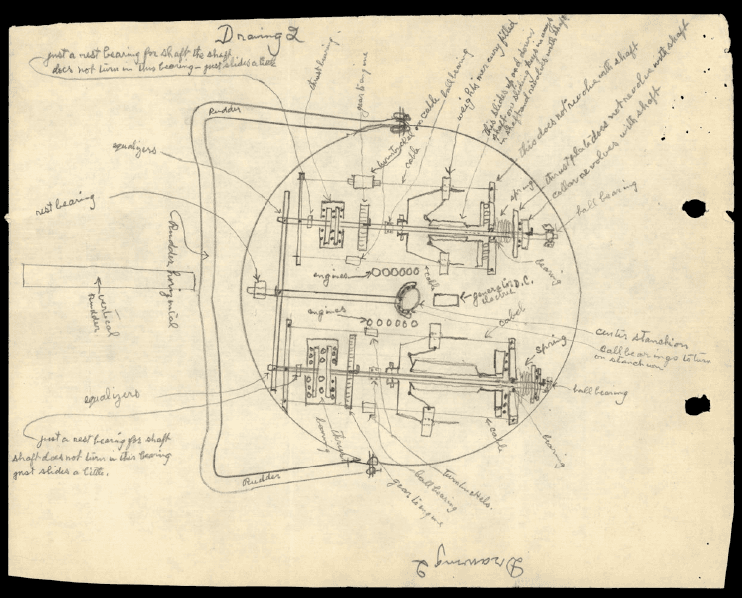 Drawing 2
just a rest bearing for shaft the shaft
does not turn in this bearing - just slides a little
Rudder
thrust bearing.
gear to engine
turnbuckel on cable
cable
ball bearing
weights mercury filled
this slides up and down
shaft on sliding keys
in shaft and revolves with shaft
this does not revolve with shaft
thrust plate does not revolve with shaft
collar revolves with shaft
equalizers
spring
ball bearing
rest bearing
bearing
Rudder horizontal
engines
cable
generator D.C.
electric
vertical
rudder.
engines
cabel
center stanchion
ball bearings to turn
on stanchion
spring
equalizers
ball bearing
just a rest bearing for shaft
shaft does not turn in this bearing
just slides a little.
thrust
bearing
cable
bearing
turnbuckels.
ball bearing
gear to engine
Rudder
Drawing 2